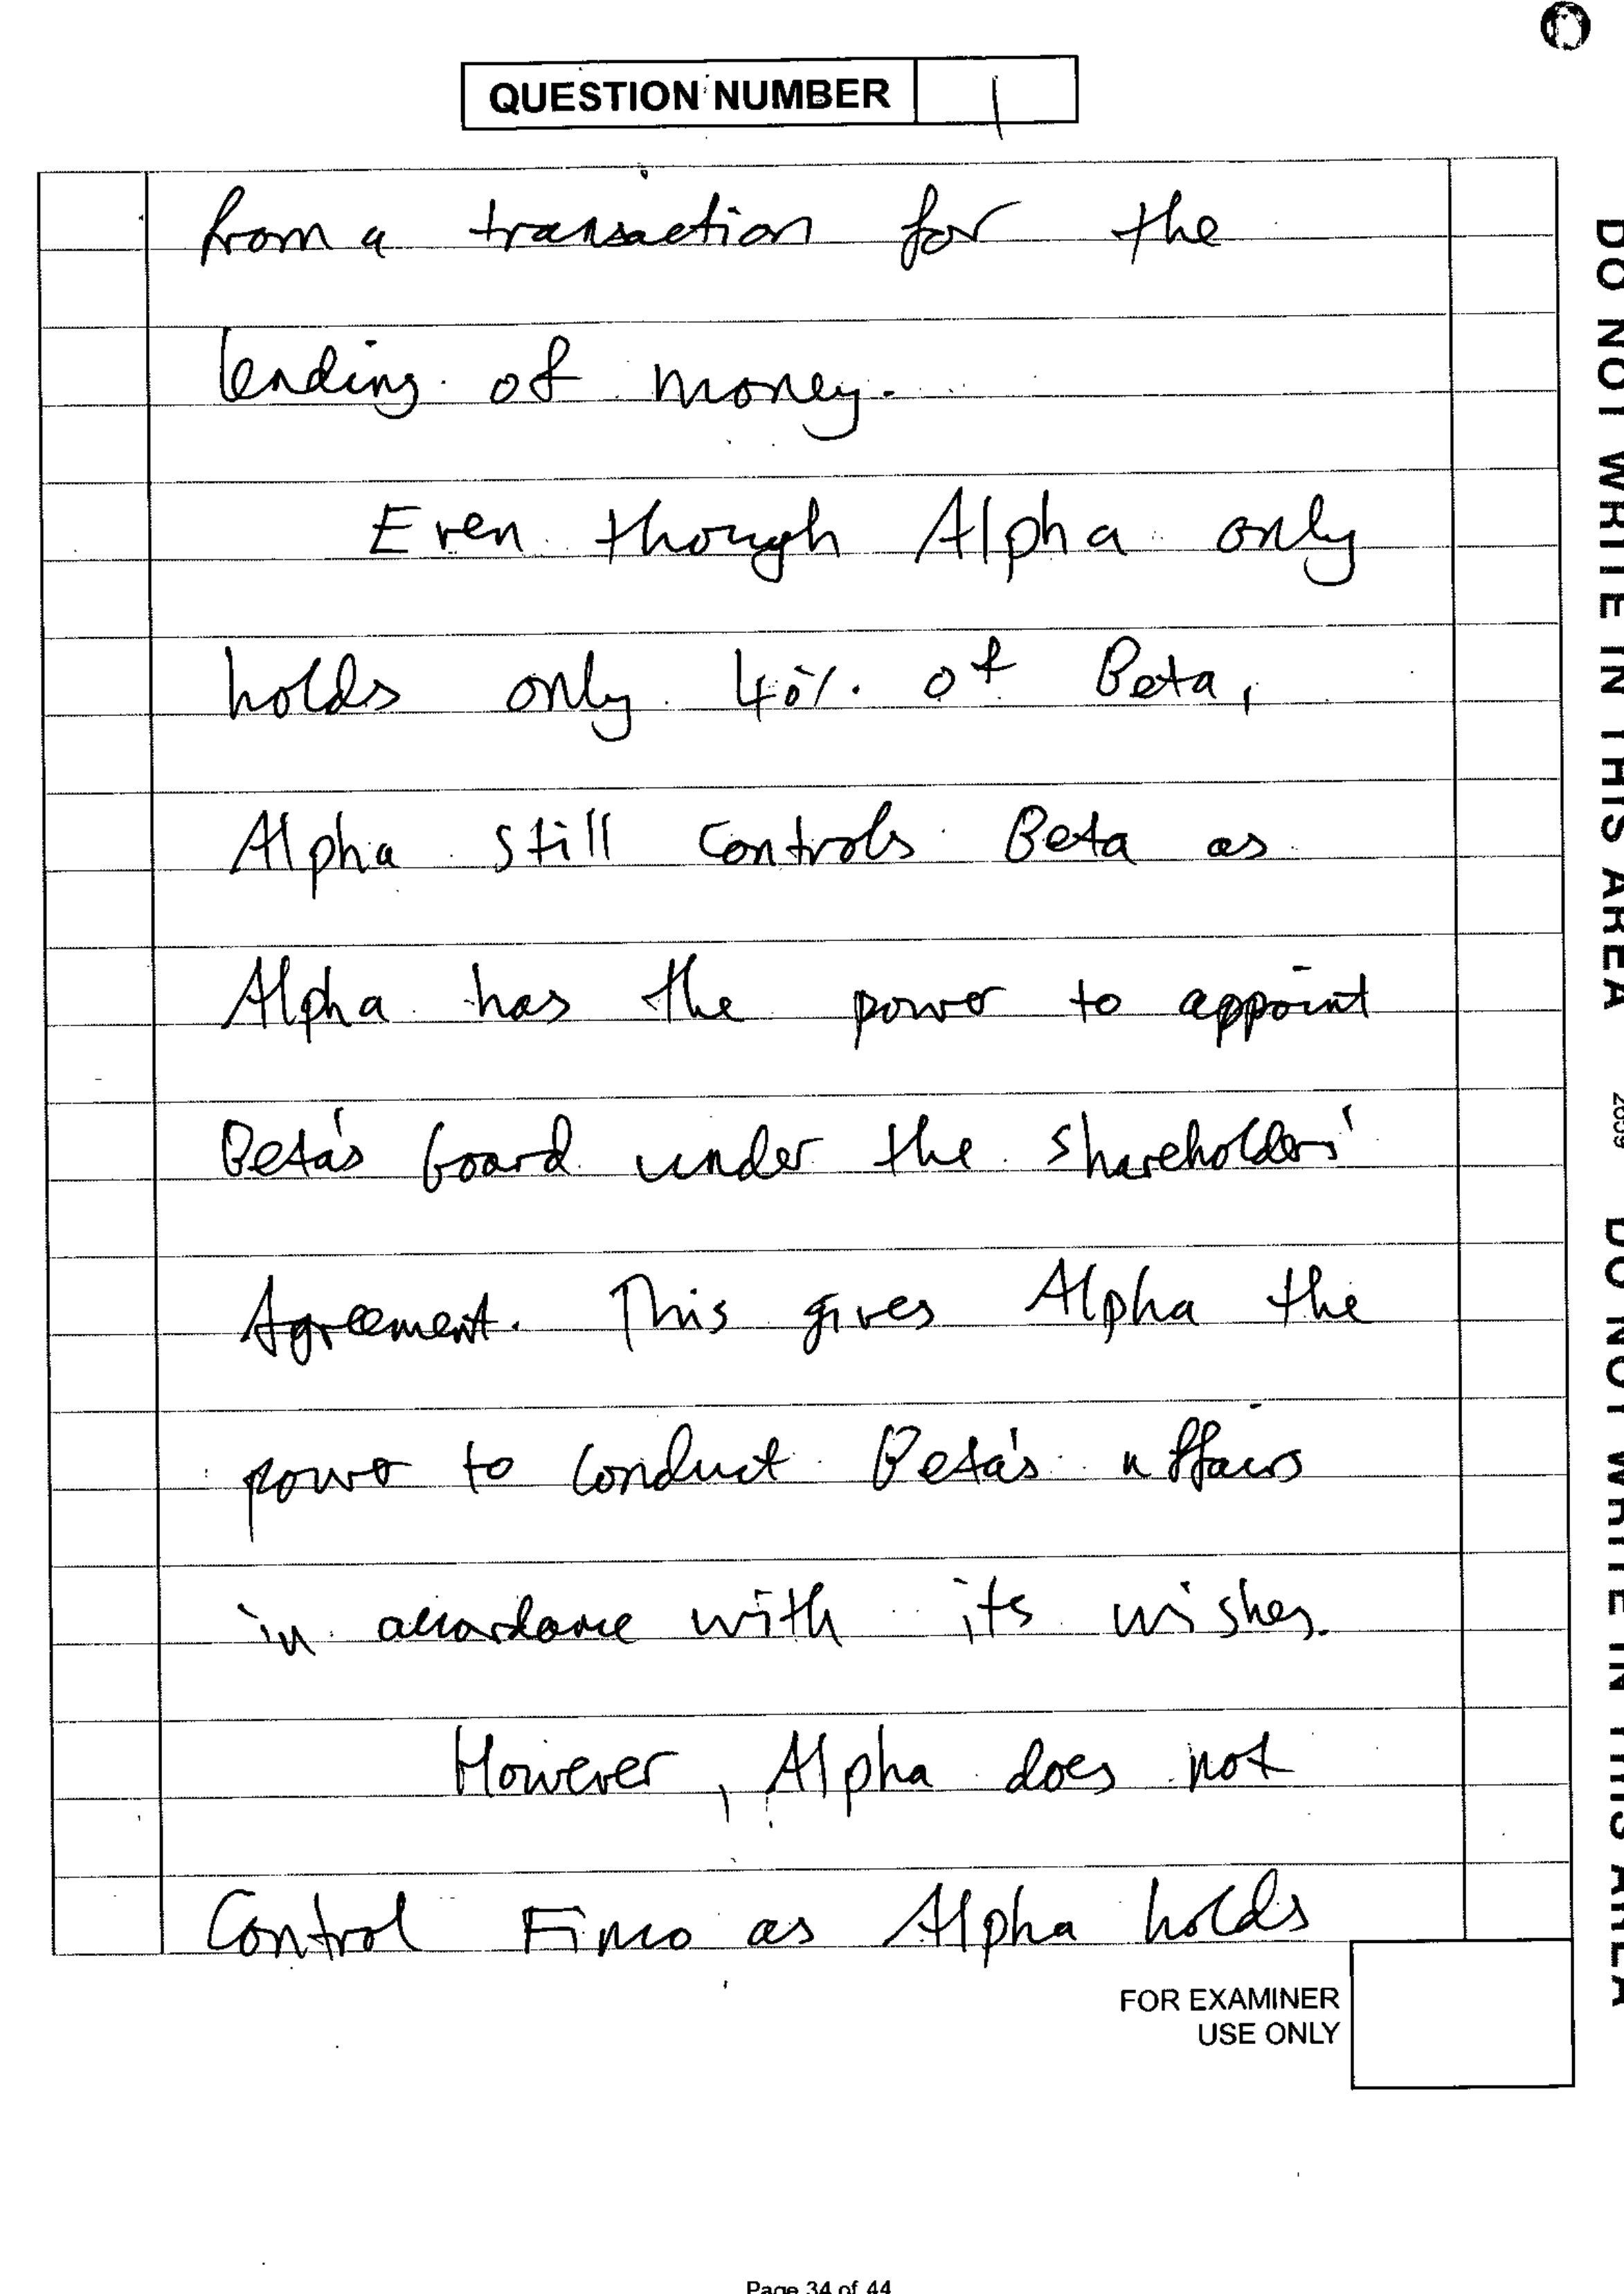 QUESTION NUMBER 1
from a transaction for the
lending of money.
Even though Alpha only
holds only 40% of Beta,
Alpha still controls Beta as
Alpha has the power to appoint
Beta's board under the shareholders'
Agreement. This gives Alpha the
power to conduct Beta's affairs
in accordance with its wishes.
However, Alpha does not
Control Finco as Alpha holds
FOR EXAMINER
USE ONLY
Page 34 of 44
DO NOT WRITE IN THIS AREA
DO NOT WRITE IN THIS AREA